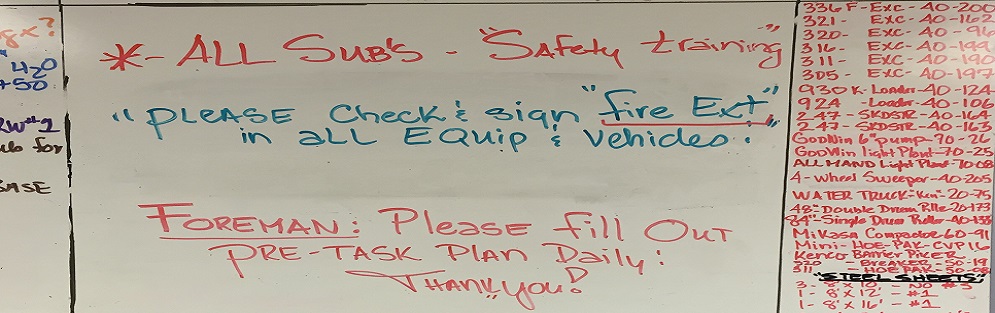 8x?
420
+50
RW#1
ub for
BASE
*- ALL SUB'S - "Safety training"
"PLEASE Check & sign "fire Ext"
in all EQuip & Vehicles.
FOREMAN: Please fill Out
PRE-TASK Plan Daily:
Thank you!
336 F - Exc - 40-200
321 - Exc - 40-162
320 - EXC - 40-96
316 - EXC - 40-199
311 - EXC - 40-190
305 - EXC - 40-197
930 K - Loader - 40-124
924 - Loader - 40-106
247 - SKDSTR - 40-164
247 - SKDSTR - 40-163
GodWin 6" pump - 70-26
GodWin light Plant - 70-25
ALLMAND Light Plant - 70-08
4-Wheel Sweeper - 40-205
WATER TRUCK - "Kw" 20-75
48" Double Drum Roller 20-173
84" Single Drum Roller 40-133
Mikasa Compactor 60-91
Mini-HOE-PAK-CVP16
Kenco Barrier Picker
320 - BREAKER - 50-19
311 - HOEPAK - 50-08
"STEEL SHEETS"
3 - 8'x10' - NO #'s
1 - 8'x12' - #1
1 - 8'x16' - #1